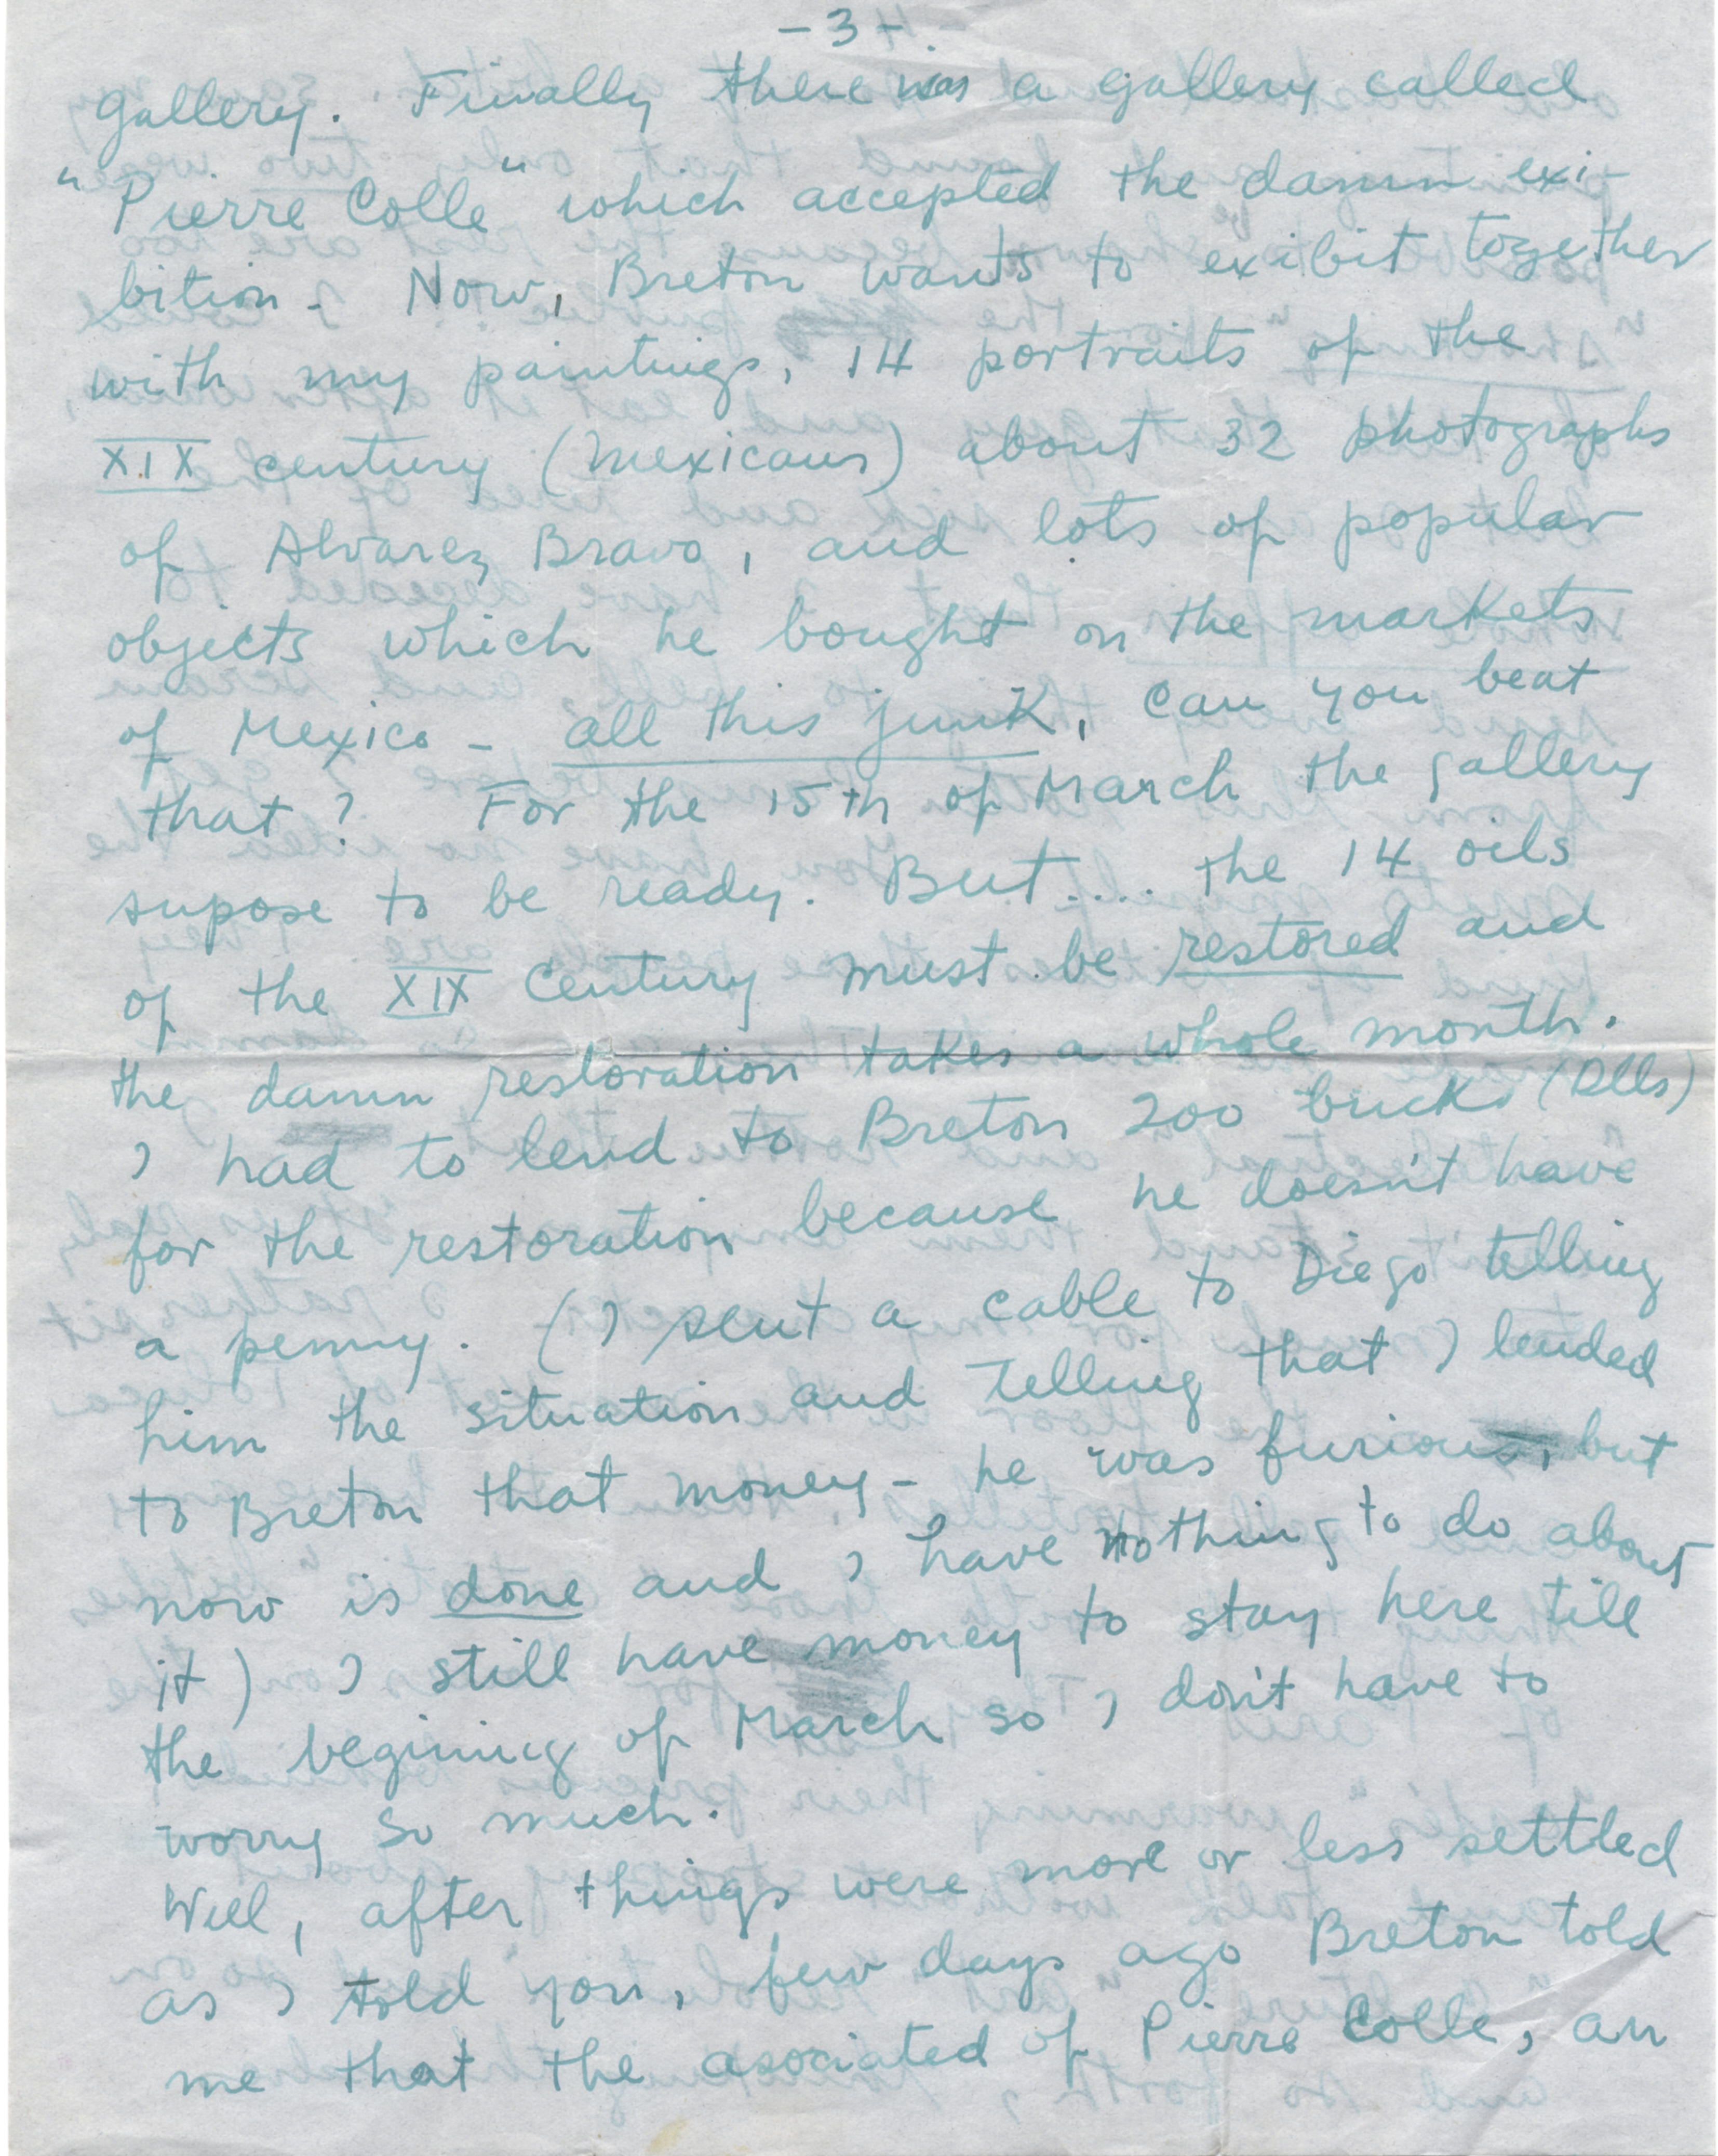 -3-.
gallery. Finally there was a gallery called
"Pierre Colle" which accepted the damn exi-
bition. Now, Breton wants to exibit together
with my paintings, 14 portraits of the
XIX century (mexicans) about 32 photographs
of Alvarez Bravo, and lots of popular
objects which he bought on the markets
of Mexico - all this junk, can you beat
that? For the 15th of March the gallery
supose to be ready. But.... the 14 oils
of the XIX Century must be restored and
the damn restoration takes a whole month.
I had to lend to Breton 200 bucks (Dlls)
for the restoration because he doesn't have
a penny. (I sent a cable to Diego telling
him the situation and telling that I lended
to Breton that money - he was furious, but
now is done and I have nothing to do about
it) I still have money to stay here till
the begining of March so I don't have to
worry so much.
Well, after things were more or less settled
as I told you, few days ago Breton told
me that the asociated of Pierre Colle, an